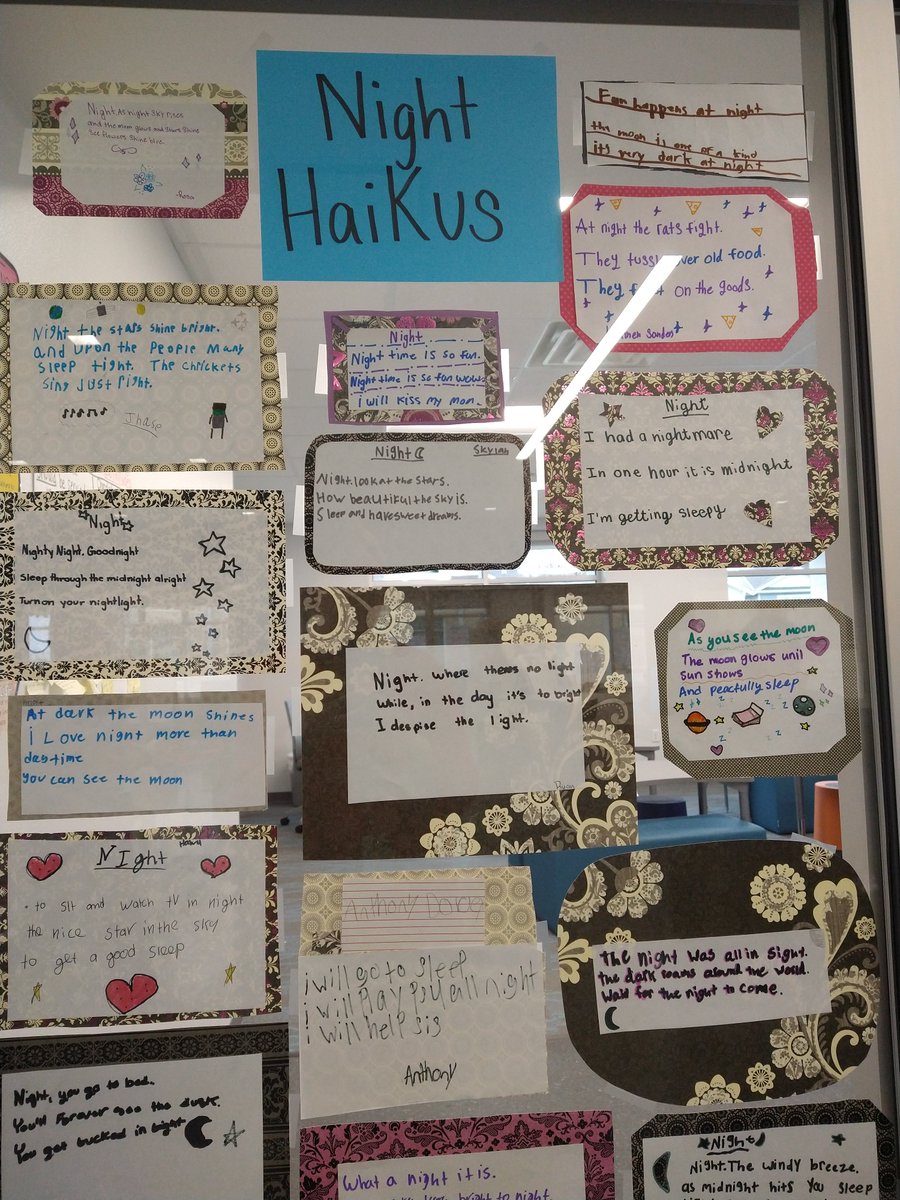 Night
HaiKus
Night. As night sky rises
and the moon glows and stars shine
see flowers shine blue.
-Rosa
Fun happens at night
the moon is one of a kind
it's very dark at night
At night the rats fight.
They over old food.
They on the goods.
Night the stars shine bright.
and upon the People Many
sleep tight. The chrickets
sing just right.
Jhase
Night
Night time is so fun.
Night time is so fun wow.
i will kiss my mom.
Night
Skylah
Night. look at the stars.
How beautiful the sky is.
Sleep and have sweet dreams.
Night
I had a nightmare
In one hour it is midnight
I'm getting sleepy
Night
Nighty Night, Goodnight
Sleep through the midnight alright
Turn on your nightlight.
Night. where theres no light
while, in the day it's to bright
I despise the light.
Ryan
As you see the moon
The moon glows unil
Sun shows
And peacfully sleep
z z z z
At dark the moon shines
i Love night more than
daytime
you can see the moon
Night
• to sit and watch tv in night
the nice star in the sky
to get a good sleep
Anthony
i will go to sleep
i will play all night
i will help sis
Anthony
The night was all in sight.
the dark roams around the world.
Wait for the night to come.
Night, you go to bed.
You'll forever see the dusk.
You get tucked in tight
What a night it is.
bright to night.
Night
Night. The windy breeze.
as midnight hits you sleep